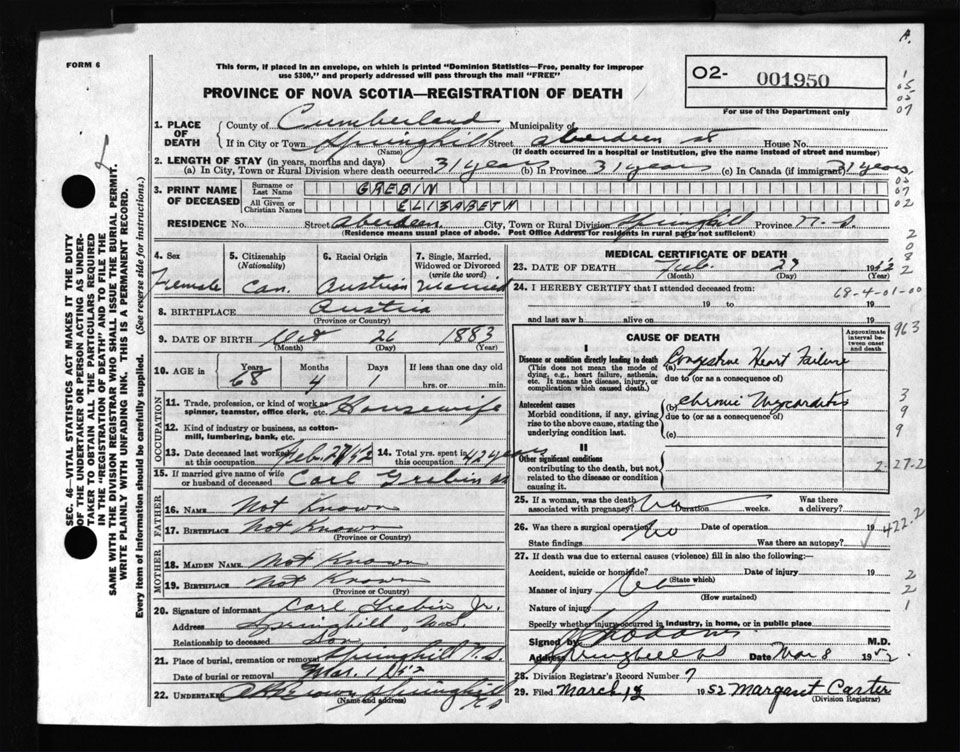 A.
FORM 6
This form, if placed in an envelope, on which is printed "Dominion Statistics—Free, penalty for improper
use $300," and properly addressed will pass through the mail "FREE"
O2- 001950
For use of the Department only
PROVINCE OF NOVA SCOTIA—REGISTRATION OF DEATH
1. PLACE OF DEATH
County of Cumberland Municipality of
If in City or Town Springhill Street Aberdeen St House No.
(Name) (If death occurred in a hospital or institution, give the name instead of street and number)
2. LENGTH OF STAY (in years, months and days)
(a) In City, Town or Rural Division where death occurred 31 years (b) In Province 31 years (c) In Canada (if immigrant) 31 years
3. PRINT NAME OF DECEASED
Surname or Last Name GREBIN
All Given or Christian Names ELIZABETH
RESIDENCE No. Street Aberdeen City, Town or Rural Division Springhill Province N.S.
(Residence means usual place of abode. Post Office Address for residents in rural parts not sufficient)
4. Sex Female
5. Citizenship (Nationality) Can.
6. Racial Origin Austrian
7. Single, Married, Widowed or Divorced (write the word) Married
8. BIRTHPLACE Austria
(Province or Country)
9. DATE OF BIRTH Oct 26 1883
(Month) (Day) (Year)
10. AGE in Years 68 Months 4 Days 1 If less than one day old
hrs. or min.
OCCUPATION
11. Trade, profession, or kind of work as spinner, teamster, office clerk, etc. Housewife
12. Kind of industry or business, as cotton-mill, lumbering, bank, etc.
13. Date deceased last worked at this occupation Feb 27/52
14. Total yrs. spent in this occupation 42 years
15. If married give name of wife or husband of deceased Carl Grebin Sr
FATHER
16. Name Not Known
17. Birthplace Not Known
(Province or Country)
MOTHER
18. Maiden Name Not Known
19. Birthplace Not Known
(Province or Country)
20. Signature of informant Carl Grebin Jr.
Address Springhill, N.S.
Relationship to deceased Son
21. Place of burial, cremation or removal Springhill N.S.
Date of burial or removal Mar. 1 52
22. Undertaker Brown Springhill
(Name and address) N.S
MEDICAL CERTIFICATE OF DEATH
23. DATE OF DEATH Feb. 27 1952
(Month) (Day) (Year)
24. I HEREBY CERTIFY that I attended deceased from: 68-4-01-00
19 to 19
and last saw h alive on 19
CAUSE OF DEATH
Approximate interval between onset and death
I
Disease or condition directly leading to death
(This does not mean the mode of dying, e.g., heart failure, asthenia, etc. It means the disease, injury, or complication which caused death.)
(a) Congestive Heart Failure
due to (or as a consequence of)
Antecedent causes
Morbid conditions, if any, giving rise to the above cause, stating the underlying condition last.
(b) Chronic Myocarditis
due to (or as a consequence of)
(c)
II
Other significant conditions contributing to the death, but not related to the disease or condition causing it.
2-27-2
25. If a woman, was the death associated with pregnancy? No Duration weeks. Was there a delivery?
26. Was there a surgical operation? No Date of operation 19
State findings Was there an autopsy?
422.2
27. If death was due to external causes (violence) fill in also the following:—
Accident, suicide or homicide? Date of injury 19
(State which)
Manner of injury No
(How sustained)
Nature of injury
Specify whether injury occurred in industry, in home, or in public place
Signed by M.D.
Address Springhill NS Date Mar 8 1952.
28. Division Registrar's Record Number 7
29. Filed March 12 1952 Margaret Carter
(Division Registrar)
SEC. 46—VITAL STATISTICS ACT MAKES IT THE DUTY
OF THE UNDERTAKER OR PERSON ACTING AS UNDER-
TAKER TO OBTAIN ALL THE PARTICULARS REQUIRED
IN THE "REGISTRATION OF DEATH" AND TO FILE THE
SAME WITH THE DIVISION REGISTRAR WHO SHALL ISSUE THE BURIAL PERMIT.
WRITE PLAINLY WITH UNFADING INK. THIS IS A PERMANENT RECORD.
Every item of information should be carefully supplied. (See reverse side for instructions.)
1
05
02
07
02
07
02
2
0
8
2
963
3
9
9
2
2
1